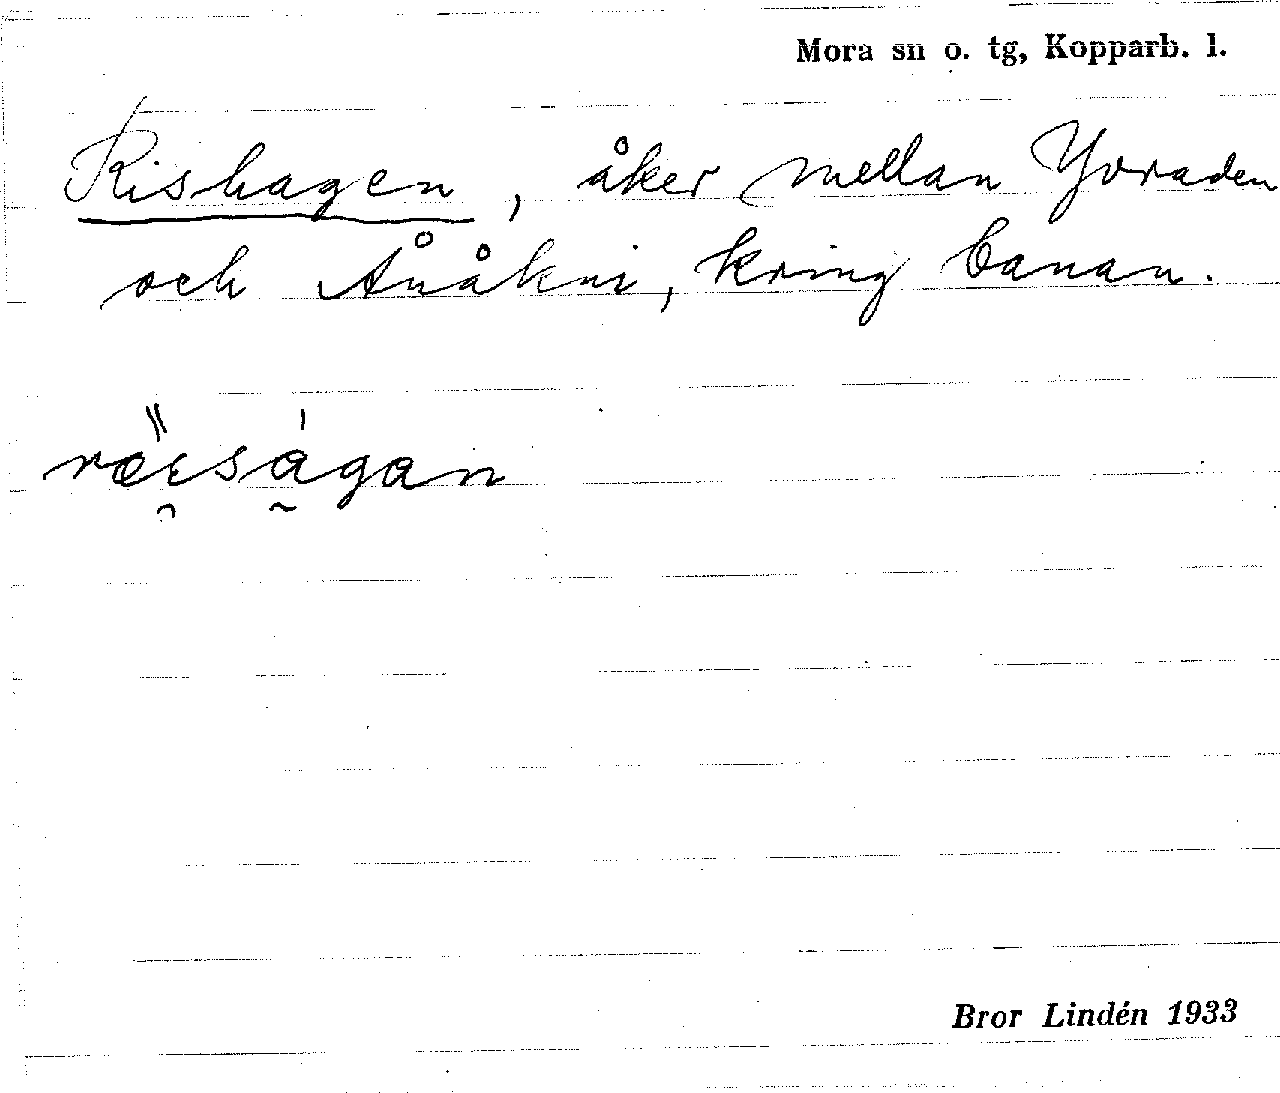 Mora sn o. tg, Kopparb. l.
Rishagen, åker mellan Yvraden
och Ånåkni, kring banan.
Bror Lindén 1933